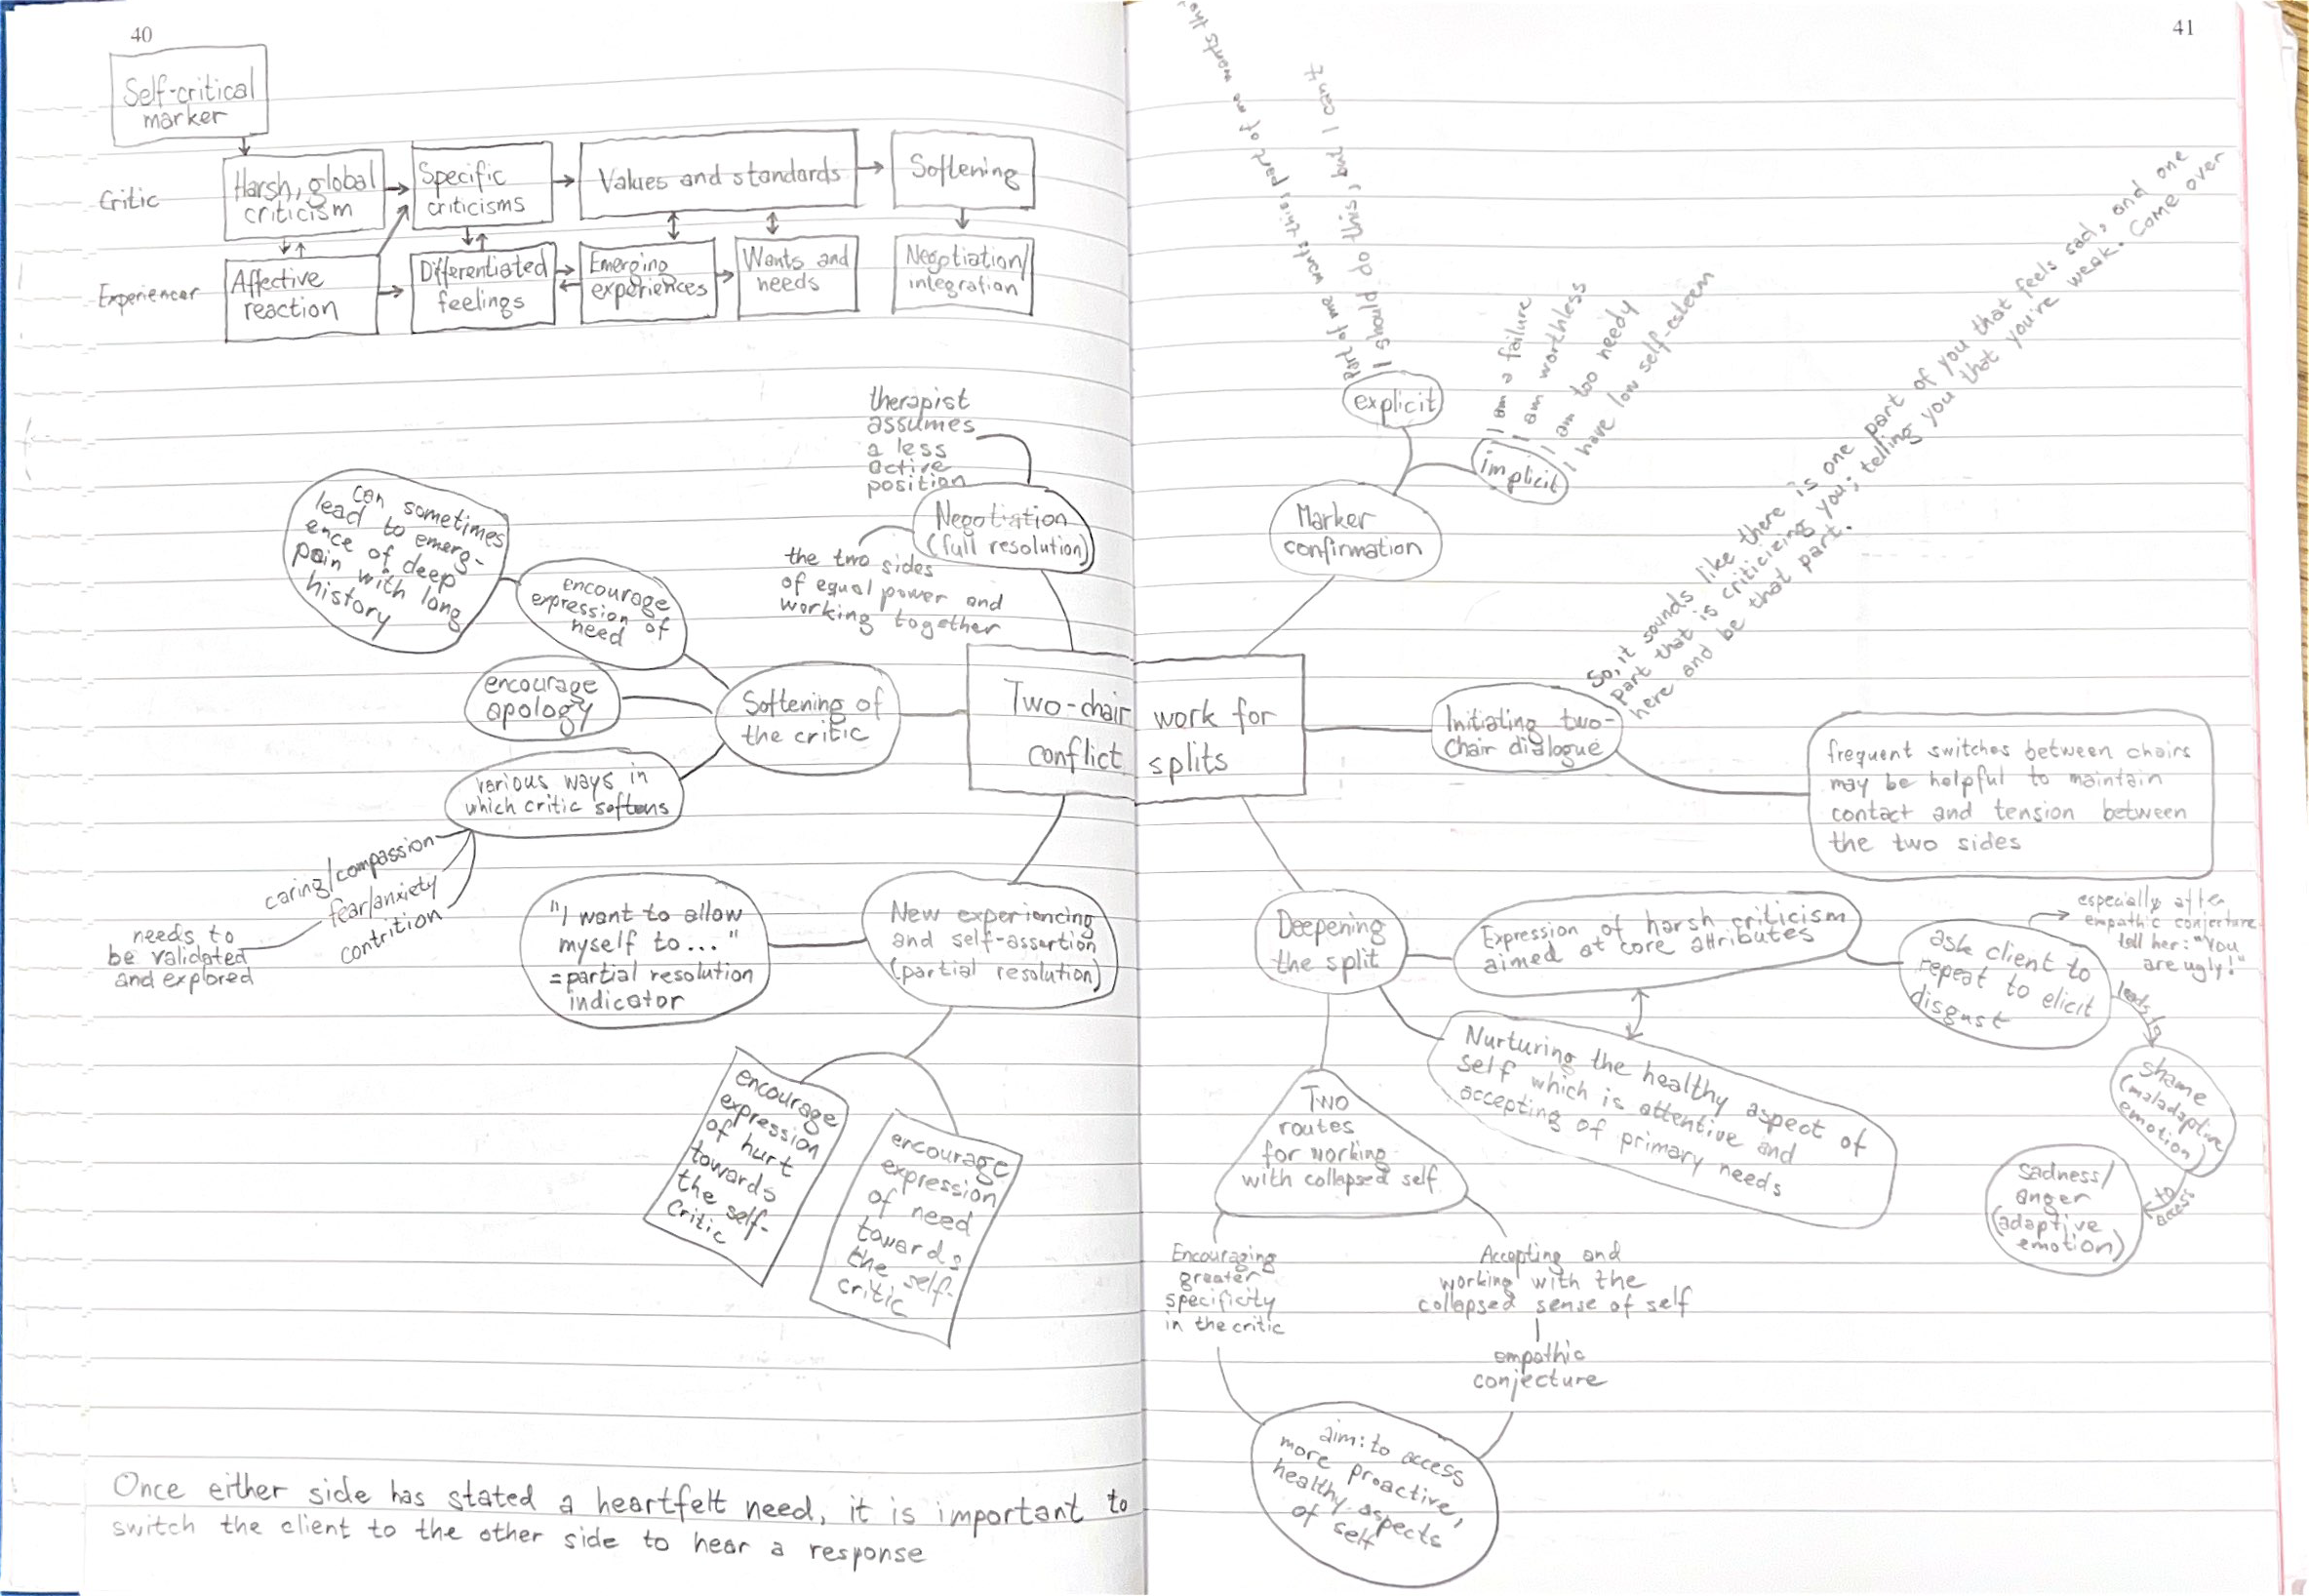 40
Self-critical
marker
Critic
Harsh, global
criticism
Specific
criticisms
Values and standards
Softening
Experiencer
Affective
reaction
Differentiated
feelings
Emerging
experiences
Wants and
needs
Negotiation/
integration
therapist
assumes
a less
active
position
Negotiation
(full resolution)
the two sides
of equal power and
working together
can sometimes
lead to emerg-
ence of deep
pain with long
history
encourage
expression of
need
encourage
apology
Softening of
the critic
various ways in
which critic softens
caring/compassion
fear/anxiety
contrition
needs to
be validated
and explored
"I want to allow
myself to..."
=partial resolution
indicator
New experiencing
and self-assertion
(partial resolution)
encourage
expression
of hurt
towards
the self-
critic
encourage
expression
of need
towards
the self-
critic
Once either side has stated a heartfelt need, it is important to
switch the client to the other side to hear a response
Two-chair work for
conflict splits
41
Part of me wants this, part of me wants
I should do this, but I can't
explicit
I am a failure
I am worthless
I am too needy
I have low self-esteem
implicit
Marker
confirmation
So, it sounds like there is one part of you that feels sad, and one
part that is criticizing you; telling you that you're weak. Come over
here and be that part.
Initiating two-
chair dialogue
frequent switches between chairs
may be helpful to maintain
contact and tension between
the two sides
Deepening
the split
Expression of harsh criticism
aimed at core attributes
ask client to
repeat to elicit
disgust
especially after
empathic conjecture
tell her: "You
are ugly!"
leads to
shame
(maladaptive
emotion)
to
access
sadness/
anger
(adaptive
emotion)
Nurturing the healthy aspect of
self which is attentive and
accepting of primary needs
Two
routes
for working
with collapsed self
Encouraging
greater
specificity
in the critic
Accepting and
working with the
collapsed sense of self
empathic
conjecture
aim: to access
more proactive,
healthy aspects
of self